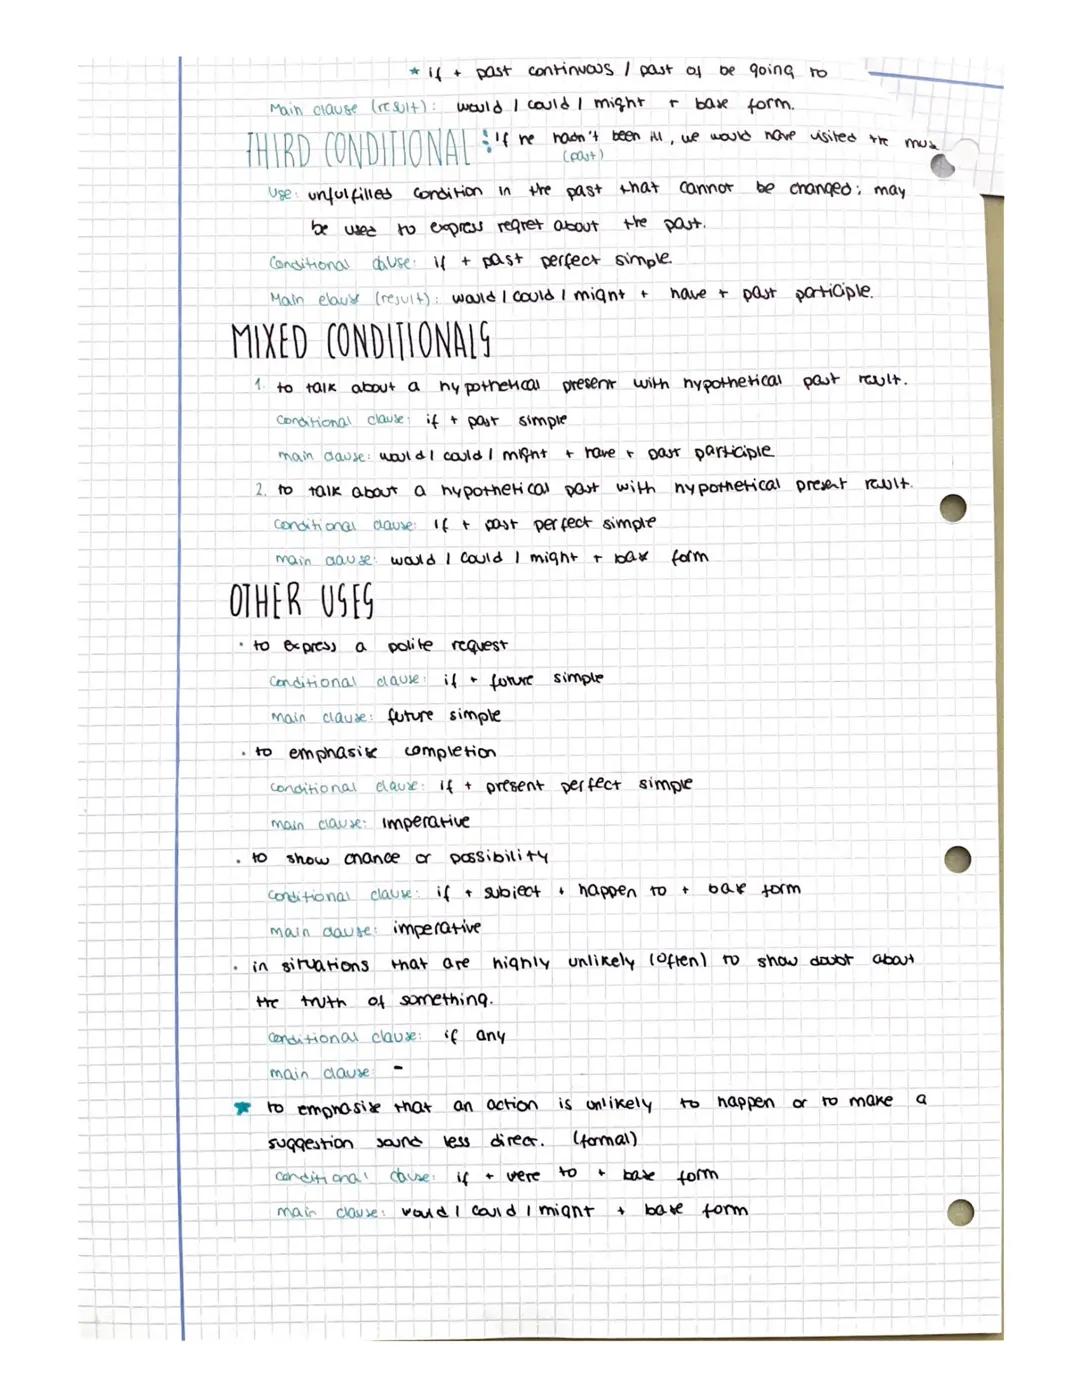 * if + past continuous / past of be going to
Main clause (result): would / could / might + base form.
THIRD CONDITIONAL : if he hadn't been ill, we would have visited the
(past)
Use: unfulfilled condition in the past that cannot be changed; may
be used to express regret about the past.
Conditional clause: if + past perfect simple.
Main clause (result): would / could / might + have + past participle.
MIXED CONDITIONALS
1. to talk about a hypothetical present with hypothetical past result.
conditional clause: if + past simple
main clause: would / could / might + have + past participle
2. to talk about a hypothetical past with hypothetical present result.
conditional clause: if + past perfect simple
main clause: would / could / might + base form
OTHER USES
• to express a polite request
conditional clause: if + future simple
main clause: future simple
• to emphasise completion
conditional clause: if + present perfect simple
main clause: imperative
• to show chance or possibility
conditional clause: if + subject + happen to + base form
main clause: imperative
• in situations that are highly unlikely (often) to show doubt about
the truth of something.
conditional clause: if any
main clause -
★ to emphasise that an action is unlikely to happen or to make a
suggestion sound less direct. (formal)
conditional clause: if + were to + base form
main clause: would / could / might + base form